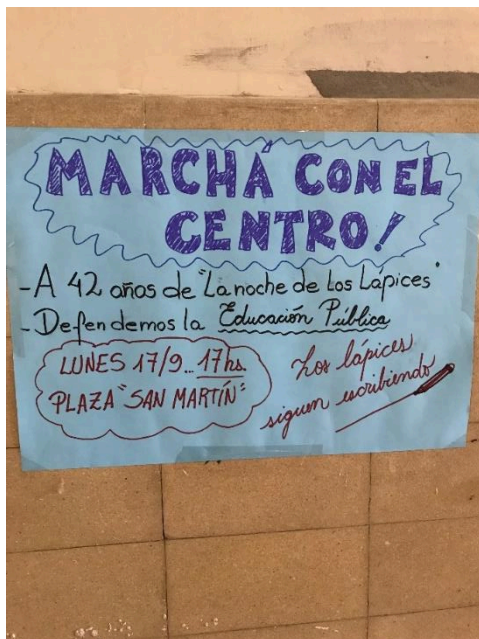 MARCHÁ CON EL
CENTRO!
-A 42 años de "La noche de Los Lápices"
-Defendemos la Educación Pública
LUNES 17/9... 17hs.
PLAZA "SAN MARTÍN"
Los lápices
siguen escribiendo